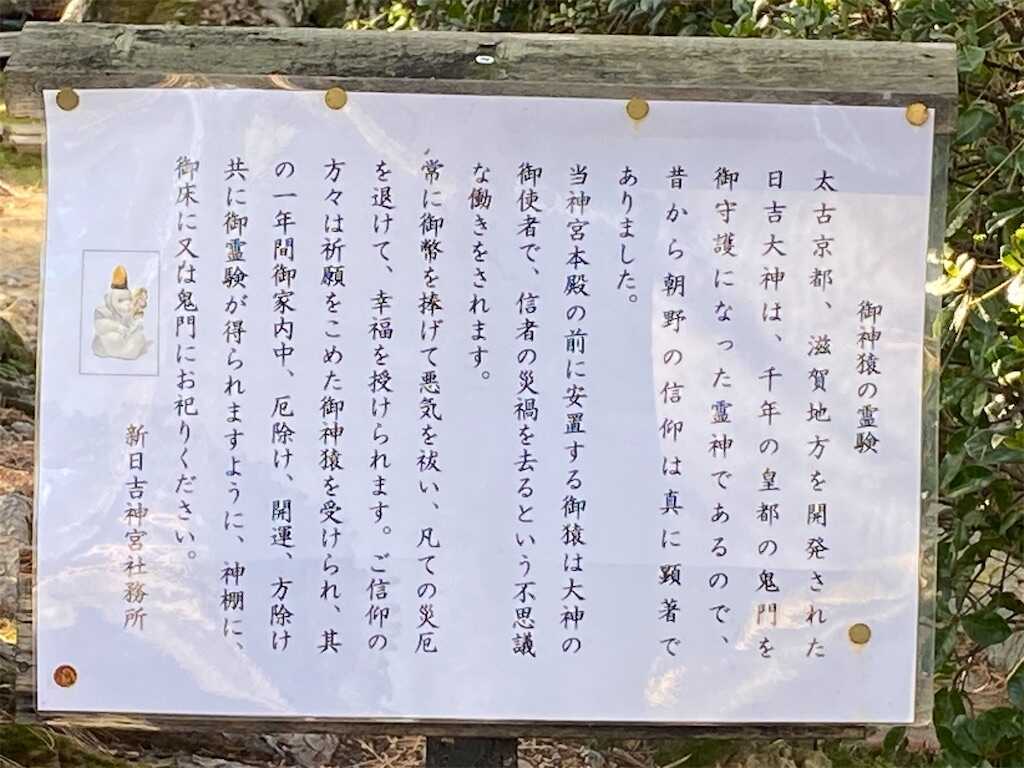 御神猿の霊験
太古京都、滋賀地方を開発された
日吉大神は、千年の皇都の鬼門を
御守護になった霊神であるので、
昔から朝野の信仰は真に顕著で
ありました。
当神宮本殿の前に安置する御猿は大神の
御使者で、信者の災禍を去るという不思議
な働きをされます。
常に御幣を捧げて悪気を祓い、凡ての災厄
を退けて、幸福を授けられます。ご信仰の
方々は祈願をこめた御神猿を受けられ、其
の一年間御家内中、厄除け、開運、方除け
共に御霊験が得られますように、神棚に、
御床に又は鬼門にお祀りください。
新日吉神宮社務所